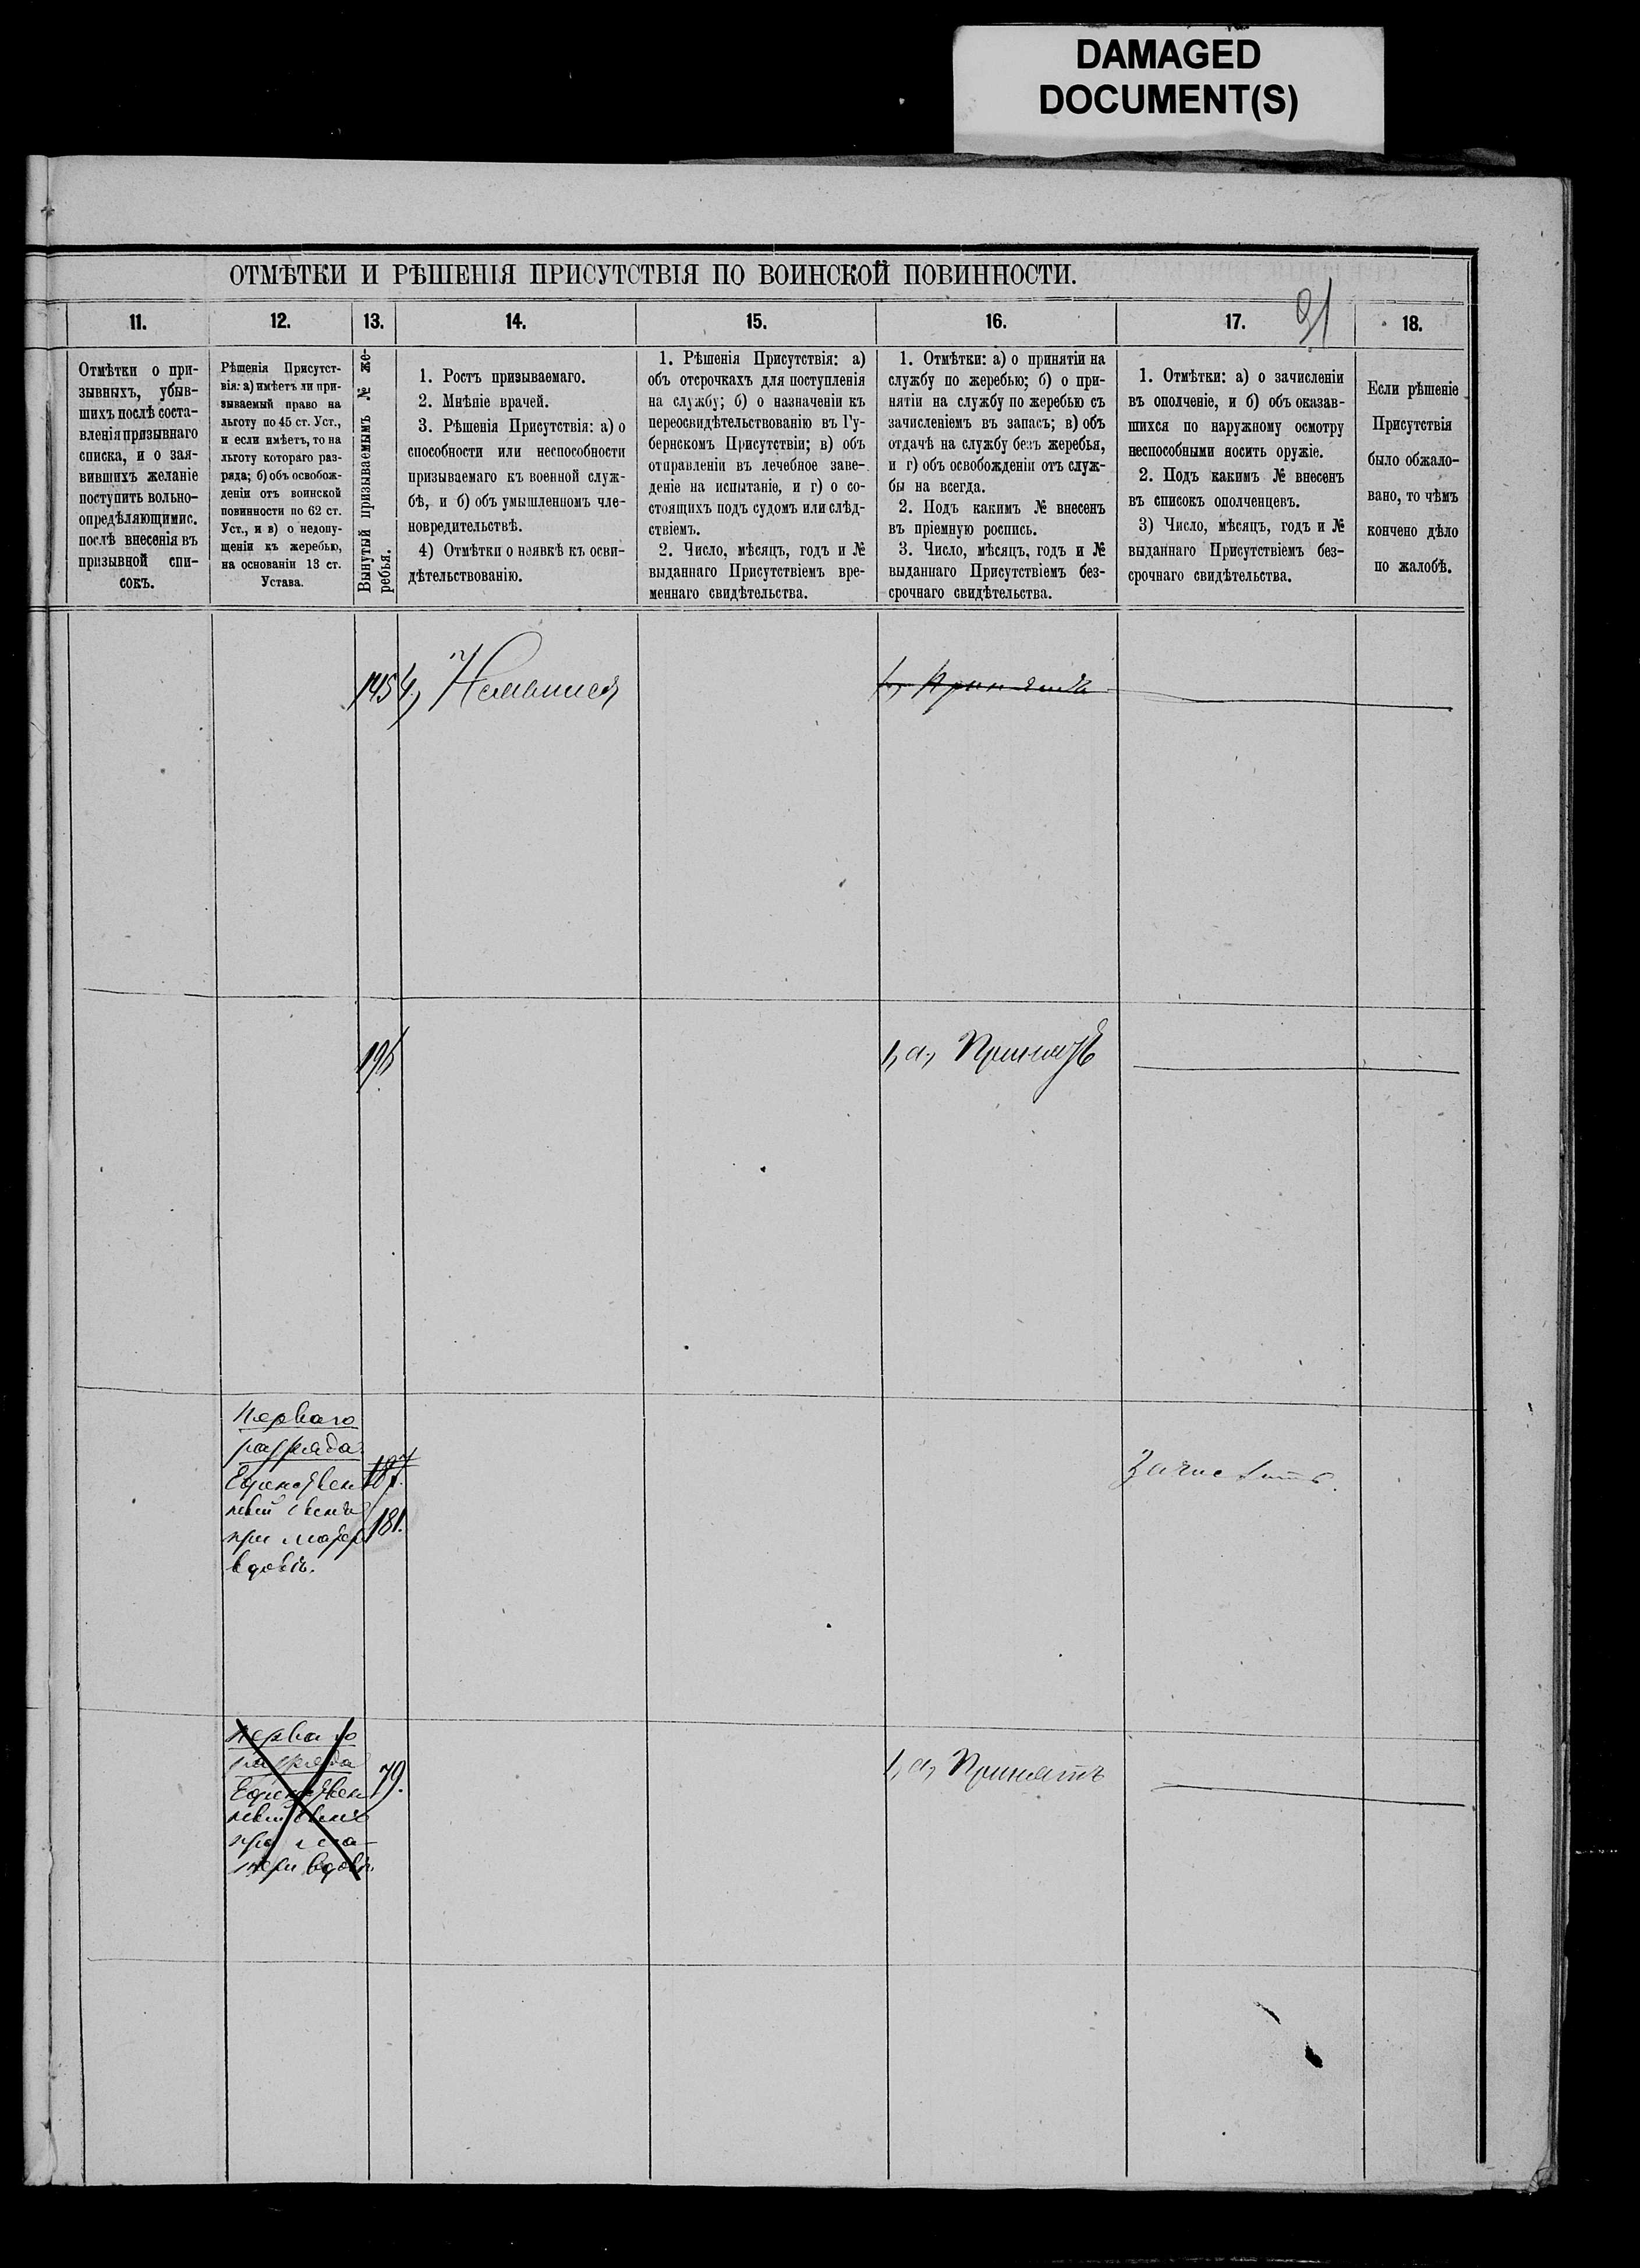 DAMAGED
DOCUMENT(S)
ОТМѢТКИ И РѢШЕНІЯ ПРИСУТСТВІЯ ПО ВОИНСКОЙ ПОВИННОСТИ.
31
11.
12.
13.
14.
15.
16.
17.
18.
Отмѣтки о при-
зывныхъ, убыв-
шихъ послѣ соста-
вленія призывнаго
списка, и о зая-
вившихъ желаніе
поступить вольно-
опредѣляющимис.
послѣ внесенія въ
призывной спи-
сокъ.
Рѣшенія Присутст-
вія: а) имѣетъ ли при-
зываемый право на
льготу по 45 ст. Уст.,
и если имѣетъ, то на
льготу котораго раз-
ряда; б) объ освобож-
деніи отъ воинской
повинности по 62 ст.
Уст., и в) о недопу-
щеніи къ жеребью,
на основаніи 13 ст.
Устава.
Вынутый призываемымъ № же-
ребья.
1. Ростъ призываемаго.
2. Мнѣніе врачей.
3. Рѣшенія Присутствія: а) о
способности или неспособности
призываемаго къ военной служ-
бѣ, и б) объ умышленномъ чле-
новредительствѣ.
4) Отмѣтки о неявкѣ къ осви-
дѣтельствованію.
1. Рѣшенія Присутствія: а)
объ отсрочкахъ для поступленія
на службу; б) о назначеніи къ
переосвидѣтельствованію въ Гу-
бернскомъ Присутствіи; в) объ
отправленіи въ лечебное заве-
деніе на испытаніе, и г) о со-
стоящихъ подъ судомъ или слѣд-
ствіемъ.
2. Число, мѣсяцъ, годъ и №
выданнаго Присутствіемъ вре-
меннаго свидѣтельства.
1. Отмѣтки: а) о принятіи на
службу по жеребью; б) о при-
нятіи на службу по жеребью съ
зачисленіемъ въ запасъ; в) объ
отдачѣ на службу безъ жеребья,
и г) объ освобожденіи отъ служ-
бы на всегда.
2. Подъ какимъ № внесенъ
въ пріемную роспись.
3. Число, мѣсяцъ, годъ и №
выданнаго Присутствіемъ без-
срочнаго свидѣтельства.
1. Отмѣтки: а) о зачисленіи
въ ополченіе, и б) объ оказав-
шихся по наружному осмотру
неспособными носить оружіе.
2. Подъ какимъ № внесенъ
въ списокъ ополченцевъ.
3) Число, мѣсяцъ, годъ и №
выданнаго Присутствіемъ без-
срочнаго свидѣтельства.
Если рѣшеніе
Присутствія
было обжало-
вано, то чѣмъ
кончено дѣло
по жалобѣ.
145
4, Неявился
Принять
1, а, Принятъ
Перваго
разряда
Единствен
ный сынъ
при матери
вдовѣ.
187.
181.
Зачислить.
Перваго
разряда
Единствен
ный сынъ
при ма-
тери вдовѣ.
79.
1, а, Принятъ